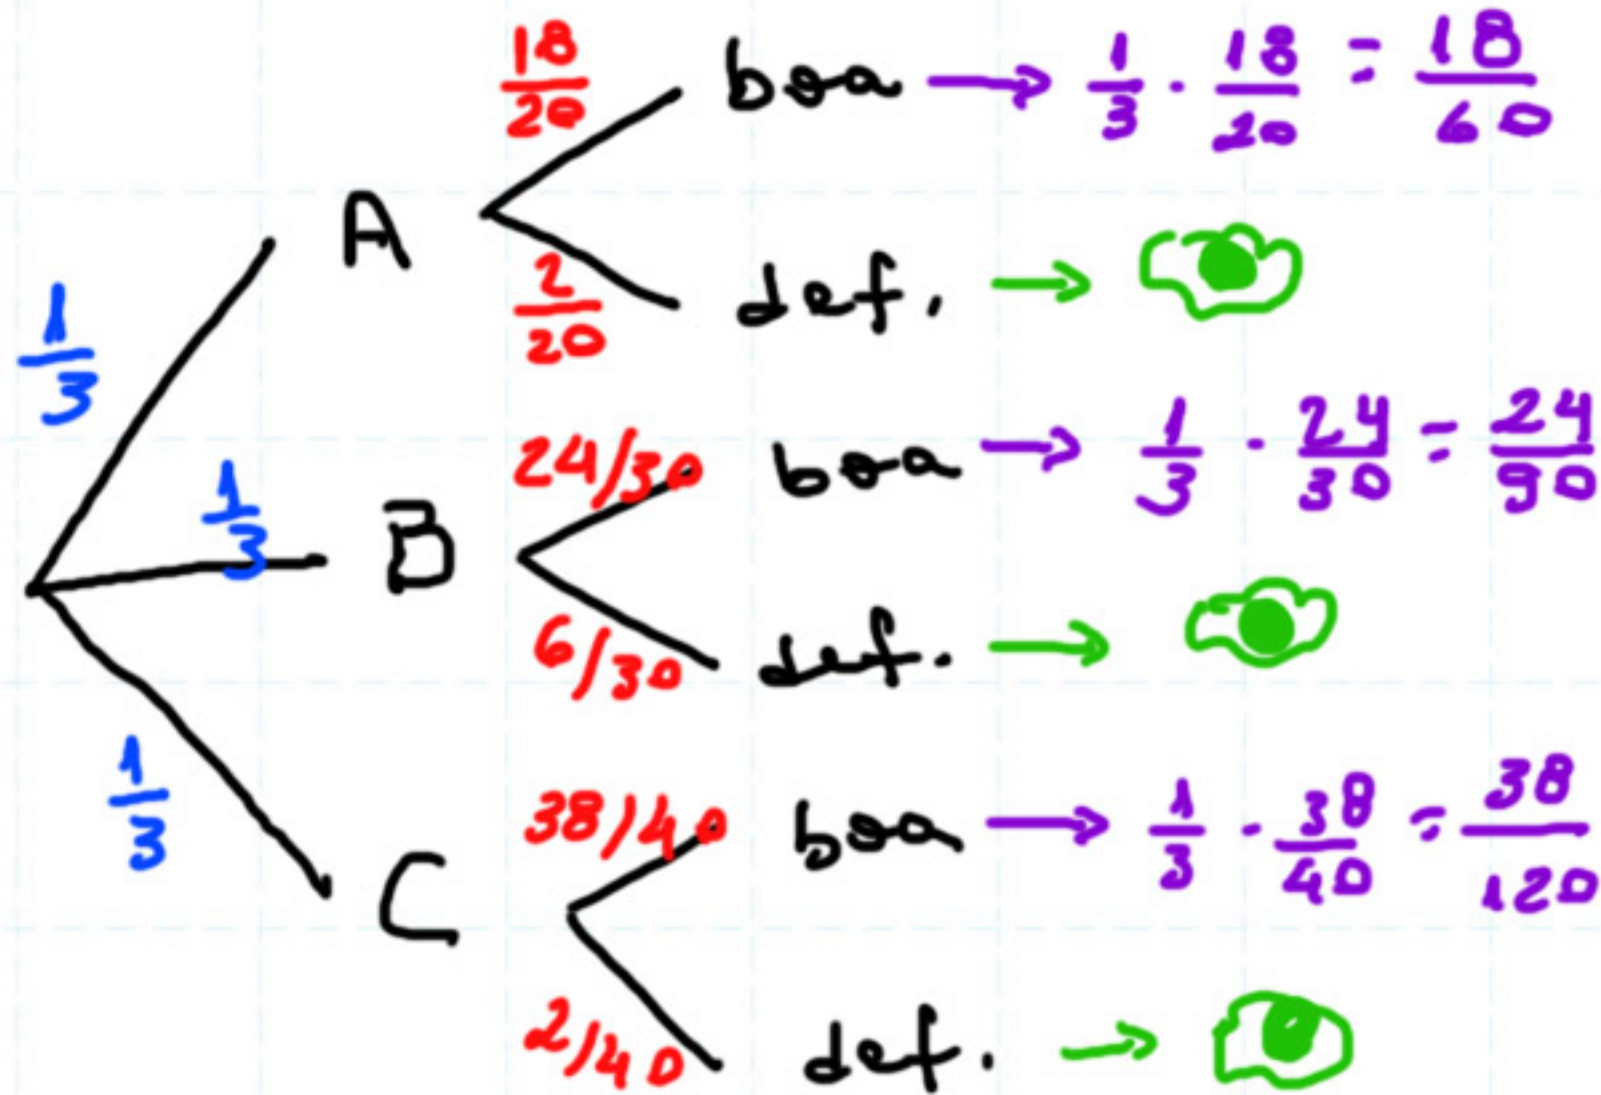 18/20 boa → 1/3 · 18/20 = 18/60
A
1/3 2/20 def. →
24/30 boa → 1/3 · 24/30 = 24/90
1/3 B
6/30 def. →
1/3 38/40 boa → 1/3 · 38/40 = 38/120
C
2/40 def. →